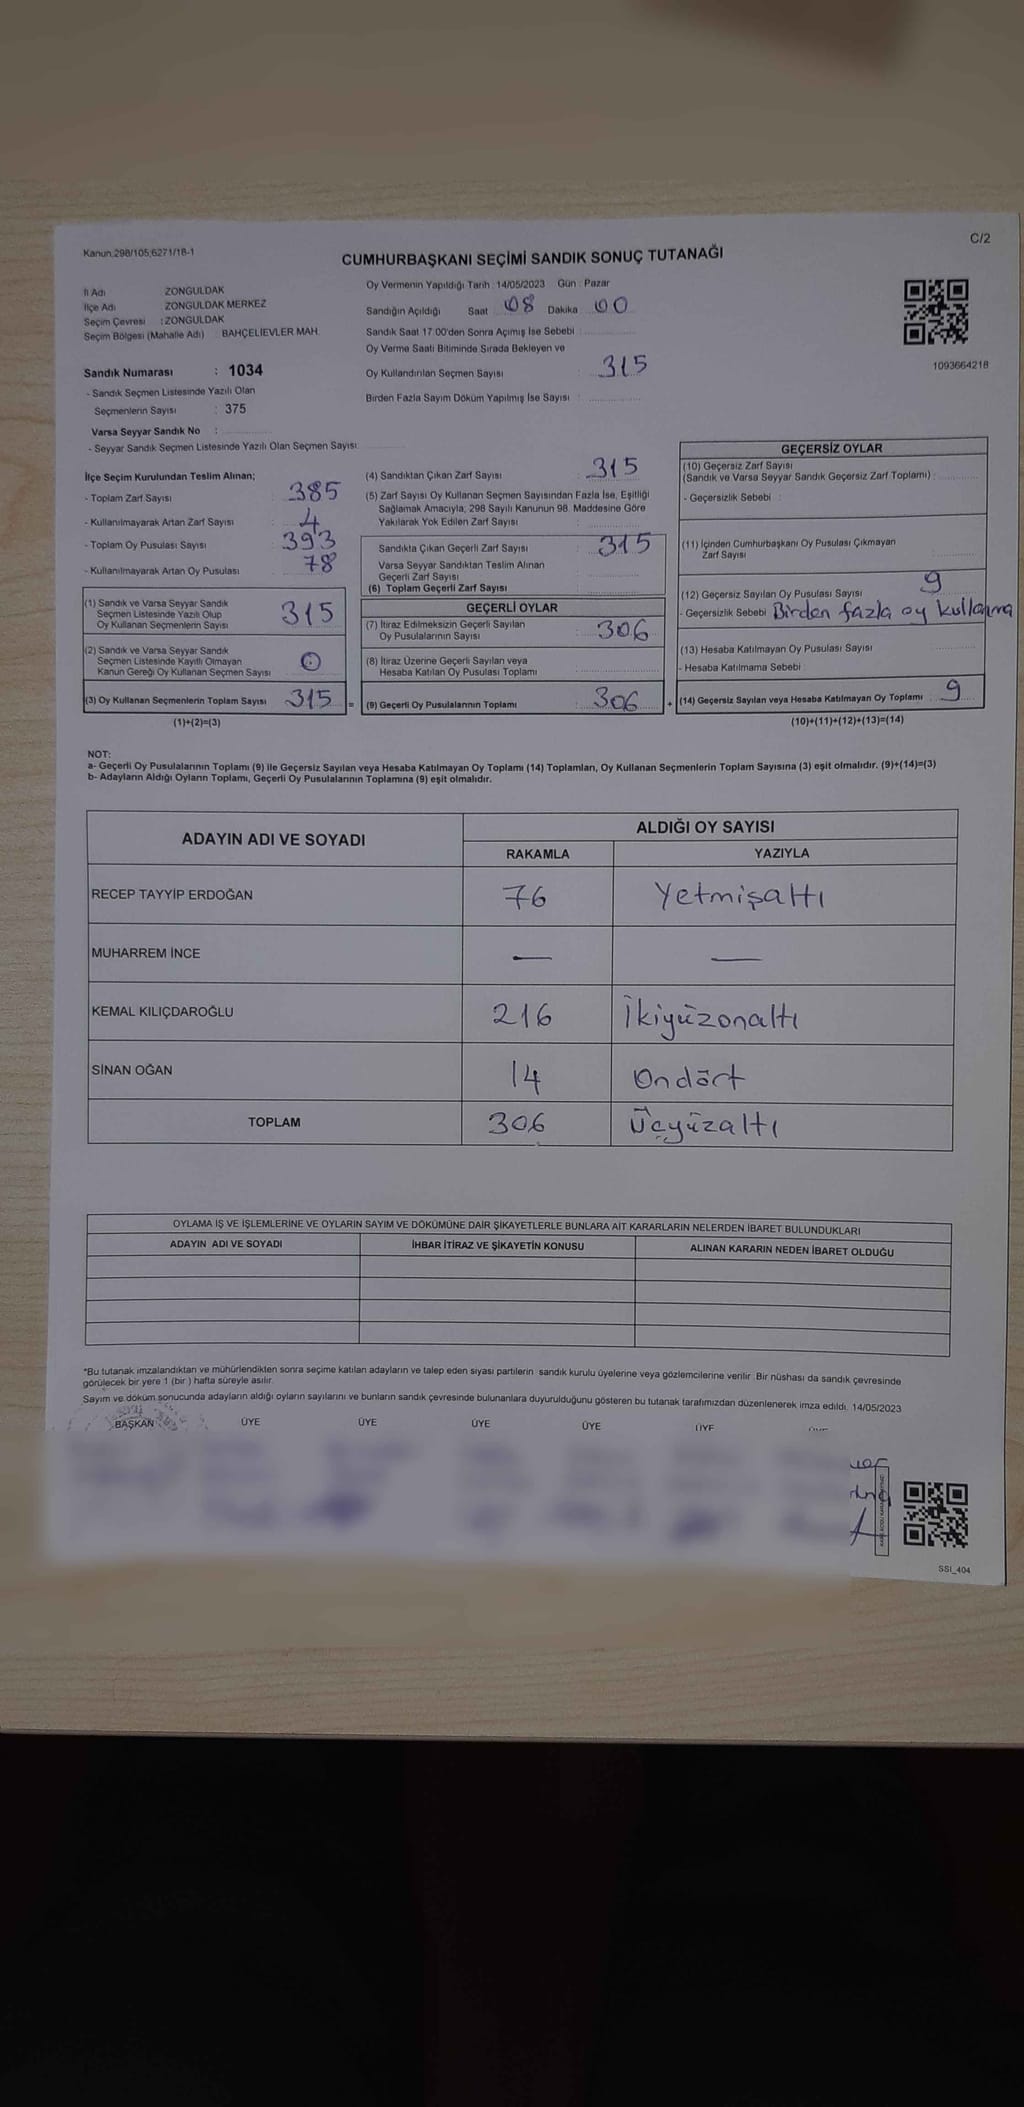 Kanun:298/105;6271/18-1
C/2
CUMHURBAŞKANI SEÇİMİ SANDIK SONUÇ TUTANAĞI
İl Adı : ZONGULDAK
İlçe Adı : ZONGULDAK MERKEZ
Seçim Çevresi : ZONGULDAK
Seçim Bölgesi (Mahalle Adı) : BAHÇELİEVLER MAH.
Sandık Numarası : 1034
- Sandık Seçmen Listesinde Yazılı Olan
Seçmenlerin Sayısı : 375
Varsa Seyyar Sandık No :
- Seyyar Sandık Seçmen Listesinde Yazılı Olan Seçmen Sayısı:
Oy Vermenin Yapıldığı Tarih : 14/05/2023 Gün : Pazar
Sandığın Açıldığı Saat 08 Dakika 00
Sandık Saat 17:00'den Sonra Açımış İse Sebebi :
Oy Verme Saati Bitiminde Sırada Bekleyen ve
Oy Kullandırılan Seçmen Sayısı : 315
Birden Fazla Sayım Döküm Yapılmış İse Sayısı :
1093664218
İlçe Seçim Kurulundan Teslim Alınan;
- Toplam Zarf Sayısı : 385
- Kullanılmayarak Artan Zarf Sayısı : 4
- Toplam Oy Pusulası Sayısı : 393
- Kullanılmayarak Artan Oy Pusulası : 78
(1) Sandık ve Varsa Seyyar Sandık
Seçmen Listesinde Yazılı Olup
Oy Kullanan Seçmenlerin Sayısı 315
(2) Sandık ve Varsa Seyyar Sandık
Seçmen Listesinde Kayıtlı Olmayan
Kanun Gereği Oy Kullanan Seçmen Sayısı 0
(3) Oy Kullanan Seçmenlerin Toplam Sayısı 315 =
(1)+(2)=(3)
(4) Sandıktan Çıkan Zarf Sayısı : 315
(5) Zarf Sayısı Oy Kullanan Seçmen Sayısından Fazla İse, Eşitliği
Sağlamak Amacıyla, 298 Sayılı Kanunun 98. Maddesine Göre
Yakılarak Yok Edilen Zarf Sayısı :
Sandıkta Çıkan Geçerli Zarf Sayısı : 315
Varsa Seyyar Sandıktan Teslim Alınan
Geçerli Zarf Sayısı
(6) Toplam Geçerli Zarf Sayısı
GEÇERLİ OYLAR
(7) İtiraz Edilmeksizin Geçerli Sayılan
Oy Pusulalarının Sayısı : 306
(8) İtiraz Üzerine Geçerli Sayılan veya
Hesaba Katılan Oy Pusulası Toplamı :
(9) Geçerli Oy Pusulalarının Toplamı : 306 +
GEÇERSİZ OYLAR
(10) Geçersiz Zarf Sayısı
(Sandık ve Varsa Seyyar Sandık Geçersiz Zarf Toplamı) :
- Geçersizlik Sebebi :
(11) İçinden Cumhurbaşkanı Oy Pusulası Çıkmayan
Zarf Sayısı
(12) Geçersiz Sayılan Oy Pusulası Sayısı 9
- Geçersizlik Sebebi Birden fazla oy kullanma
(13) Hesaba Katılmayan Oy Pusulası Sayısı
- Hesaba Katılmama Sebebi :
(14) Geçersiz Sayılan veya Hesaba Katılmayan Oy Toplamı 9
(10)+(11)+(12)+(13)=(14)
NOT:
a- Geçerli Oy Pusulalarının Toplamı (9) ile Geçersiz Sayılan veya Hesaba Katılmayan Oy Toplamı (14) Toplamları, Oy Kullanan Seçmenlerin Toplam Sayısına (3) eşit olmalıdır. (9)+(14)=(3)
b- Adayların Aldığı Oyların Toplamı, Geçerli Oy Pusulalarının Toplamına (9) eşit olmalıdır.
ADAYIN ADI VE SOYADI ALDIĞI OY SAYISI
RAKAMLA YAZIYLA
RECEP TAYYİP ERDOĞAN 76 Yetmişaltı
MUHARREM İNCE — —
KEMAL KILIÇDAROĞLU 216 İkiyüzonaltı
SİNAN OĞAN 14 Ondört
TOPLAM 306 Üçyüzaltı
OYLAMA İŞ VE İŞLEMLERİNE VE OYLARIN SAYIM VE DÖKÜMÜNE DAİR ŞİKAYETLERLE BUNLARA AİT KARARLARIN NELERDEN İBARET BULUNDUKLARI
ADAYIN ADI VE SOYADI İHBAR İTİRAZ VE ŞİKAYETİN KONUSU ALINAN KARARIN NEDEN İBARET OLDUĞU
*Bu tutanak imzalandıktan ve mühürlendikten sonra seçime katılan adayların ve talep eden siyasi partilerin sandık kurulu üyelerine veya gözlemcilerine verilir. Bir nüshası da sandık çevresinde
görülecek bir yere 1 (bir ) hafta süreyle asılır.
Sayım ve döküm sonucunda adayların aldığı oyların sayılarını ve bunların sandık çevresinde bulunanlara duyurulduğunu gösteren bu tutanak tarafımızdan düzenlenerek imza edildi. 14/05/2023
BAŞKAN ÜYE ÜYE ÜYE ÜYE ÜYE
SSI_404